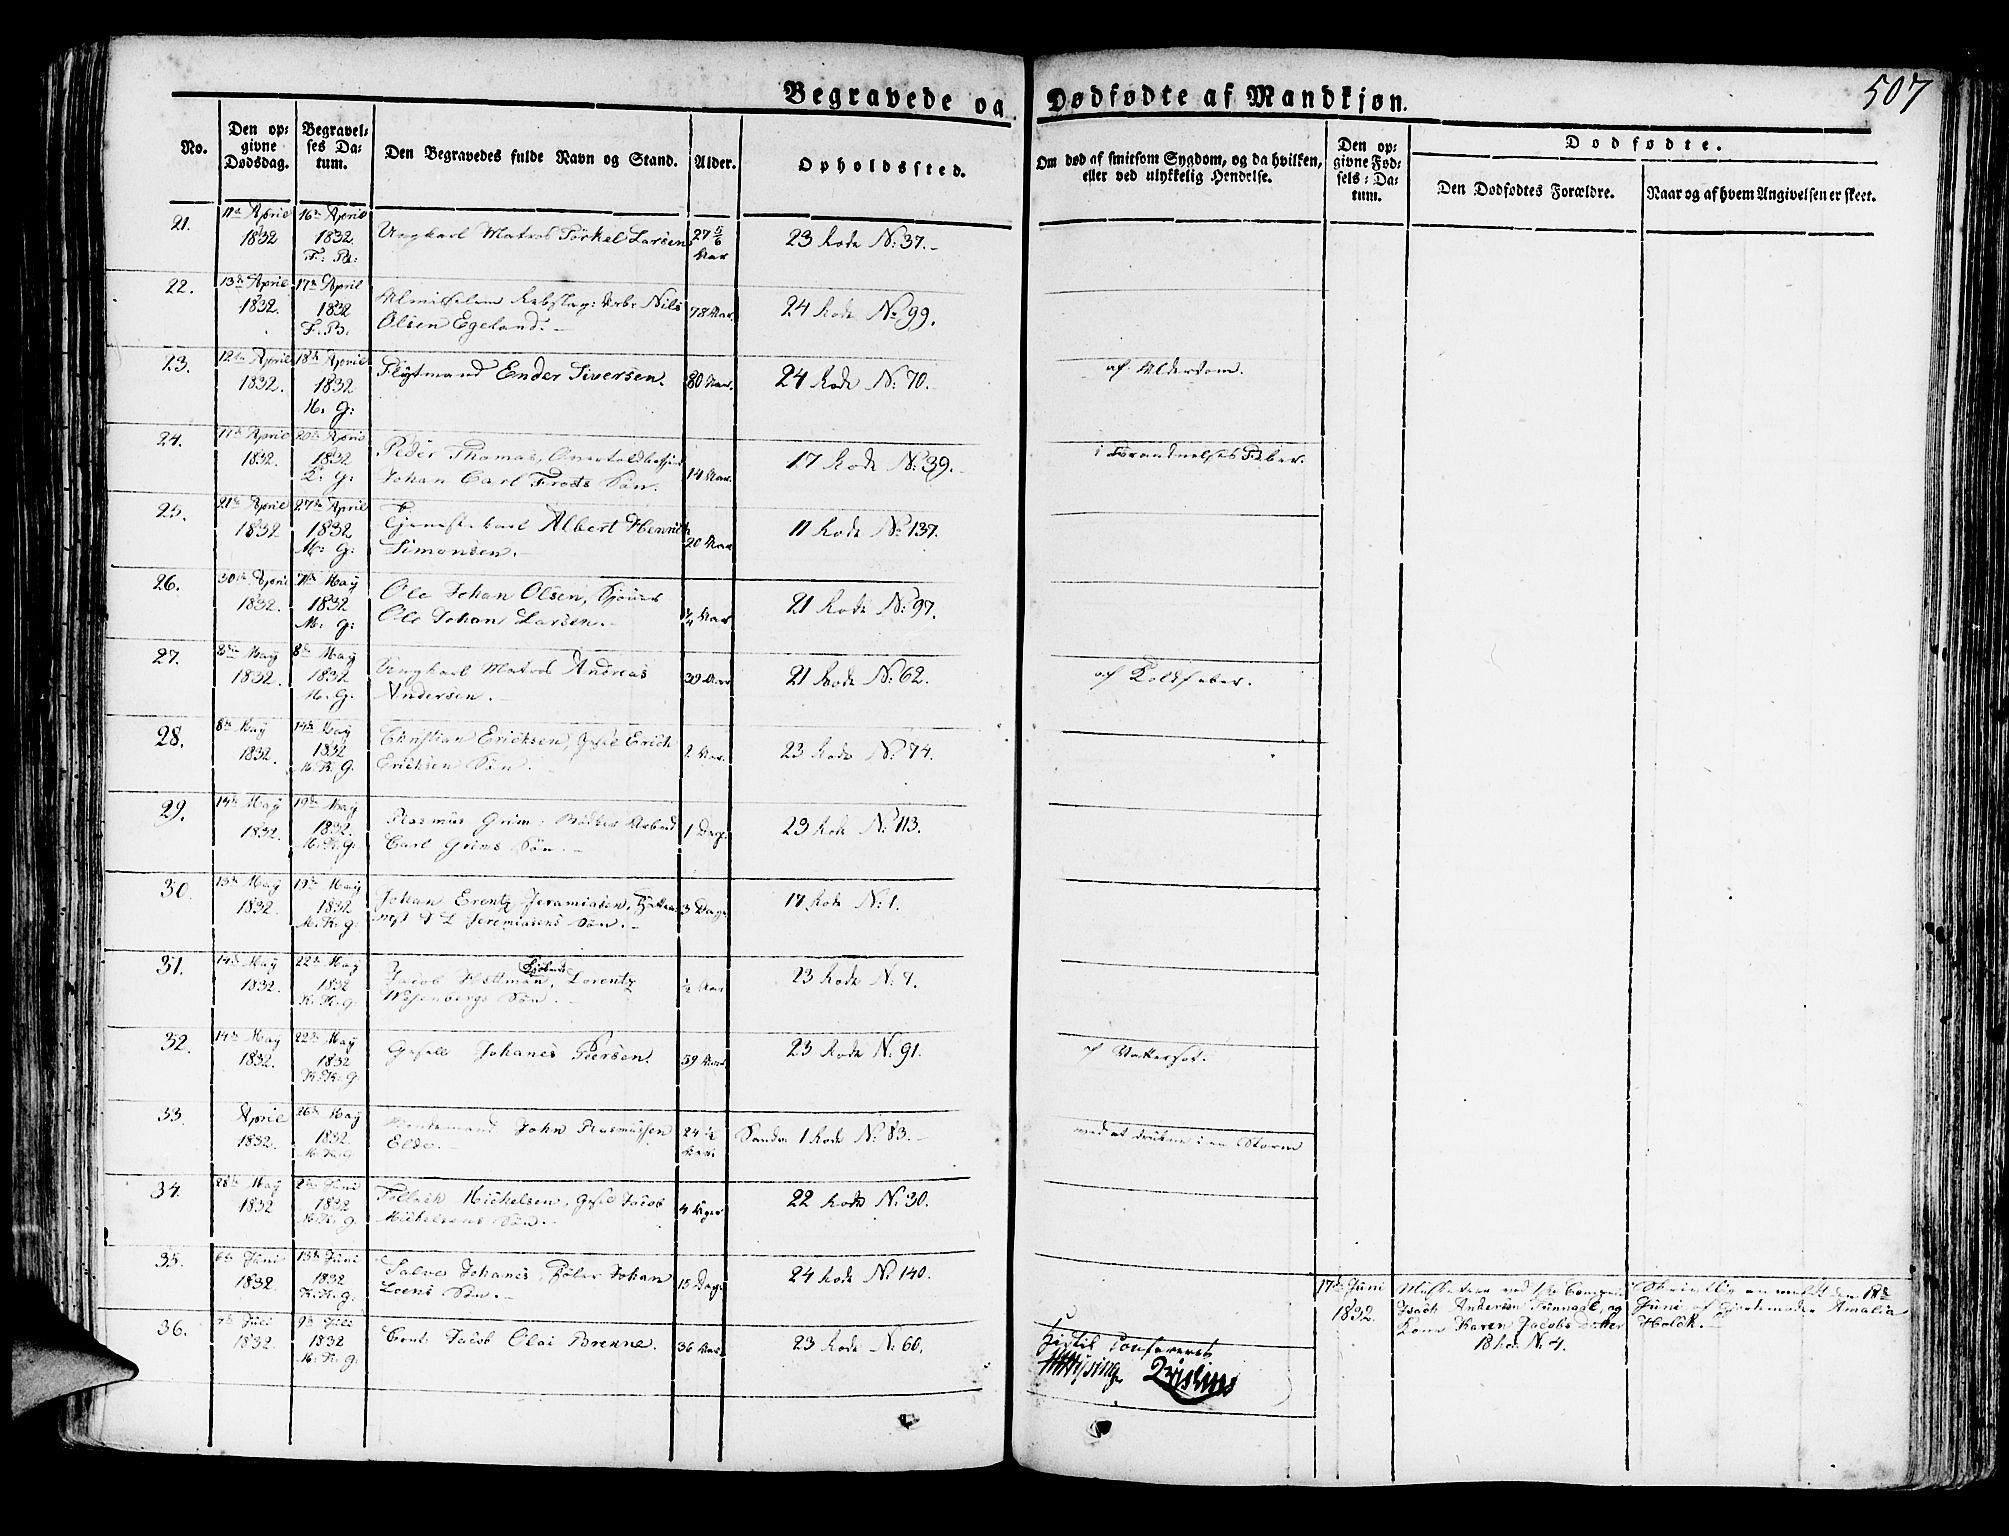 507
Begravede og Dødfødte af Mandkjøn.
No.
Den opgivne Dødsdag.
Begravelses Datum.
Den Begravedes fulde Navn og Stand.
Alder.
Opholdssted.
Om død af smitsom Sygdom, og da hvilken, eller ved ulykkelig Hendelse.
Den opgivne Fødsels-Datum.
Dødfødte.
Den Dødfødtes Forældre.
Naar og af hvem Angivelsen er skeet.
21. 11te April 1832 16te April 1832. F. B: Ungkarl Matros Törkel Larsen 27 5/6 Aar 23 Rode No: 37.
22. 13de April 1832. 17de April 1832 F. B: Nils Olsen Egeland. 78 Aar. 24 Rode No 99.
23. 12te April 1832. 18de April 1832 M. G: Flÿtmand Ender Siversen. 80 Aar. 24 Rode No: 70. af Alderdom.
24. 17de April 1832. 20de April 1832 K. G: Peder Thomas, Johan Carl Frods Søn. 14 Aar. 17 Rode No: 39. i Forraadnelses Feber.
25. 21de April 1832 27de April 1832 M: G: Tjenestekarl Albert Henrich Simonsen. 20 Aar 11 Rode No 137.
26. 30te April 1832. 7de Maÿ 1832 M: G: Ole Johan Olsen, Sjöuer Ole Johan Larsen. 1/4 Aar 21 Rode No: 97.
27. 8de Maÿ 1832. 8de Maÿ 1832 M. G. Ungkarl Matros Andreas Andersen. 39 Aar 21 Rode No: 62. af Koldfeber.
28. 8de Maÿ 1832. 14de Maÿ 1832 M. K. G. Christian Ericksen, Gesel Erich Ericksen Søn. 2 Aar. 23 Rode No: 74.
29. 14de Maÿ 1832. 19de Maÿ 1832. M. K. G. Rasmus Grim: Bödker Carl Grims Søn. 1 Dag. 23 Rode No: 113.
30. 13de Maÿ 1832. 19de Maÿ 1832 M. K. G. Johan Erentz Jeramiasen, Jeremiasens Søn. 3 Dage 17 Rode No: 1.
31. 14de Maÿ 1832. 22de Maÿ 1832 K. K. G. Jacob Hottman, Lorentz Wesenbergs Søn. 1/2 Aar 23 Rode No: 7.
32. 14de Maÿ 1832. 22de Maÿ 1832 K. K. G Gesell Johanes Peersen. 59 Aar 23 Rode No: 91. af Vattersot.
33. April 1832. 26de Maÿ 1832. M. K. G. John Rasmussen Elde. 24 1/2 Aar Sandv. 1 Rode No: 83. ved at drukne i en Storm
34. 28de Maÿ 1832 2den Juni 1832 M. K. G. Tollach Mickelsen, Gesel Jacob Mickelsens Søn. 4 Uger 22 Rode No: 30.
35. 6te Juni 1832. 13de Juni 1832 K. K. G. Salve Johanes, Johan Loens Søn. 15 Dage 24 Rode No: 140.
17de Juni 1832. Musketeer ved Andersen og Kone Karen Jacobs datter No. 4. Skriftlig anmeldt den 18de Juni af Gjordemoder Amalia Holck.
36. 7de Juli 1832. 9de Juli 1832 M. K. G. Jacob Olai Brenne. 36 Aar. 23 Rode No: 60.
Hertil Confereret